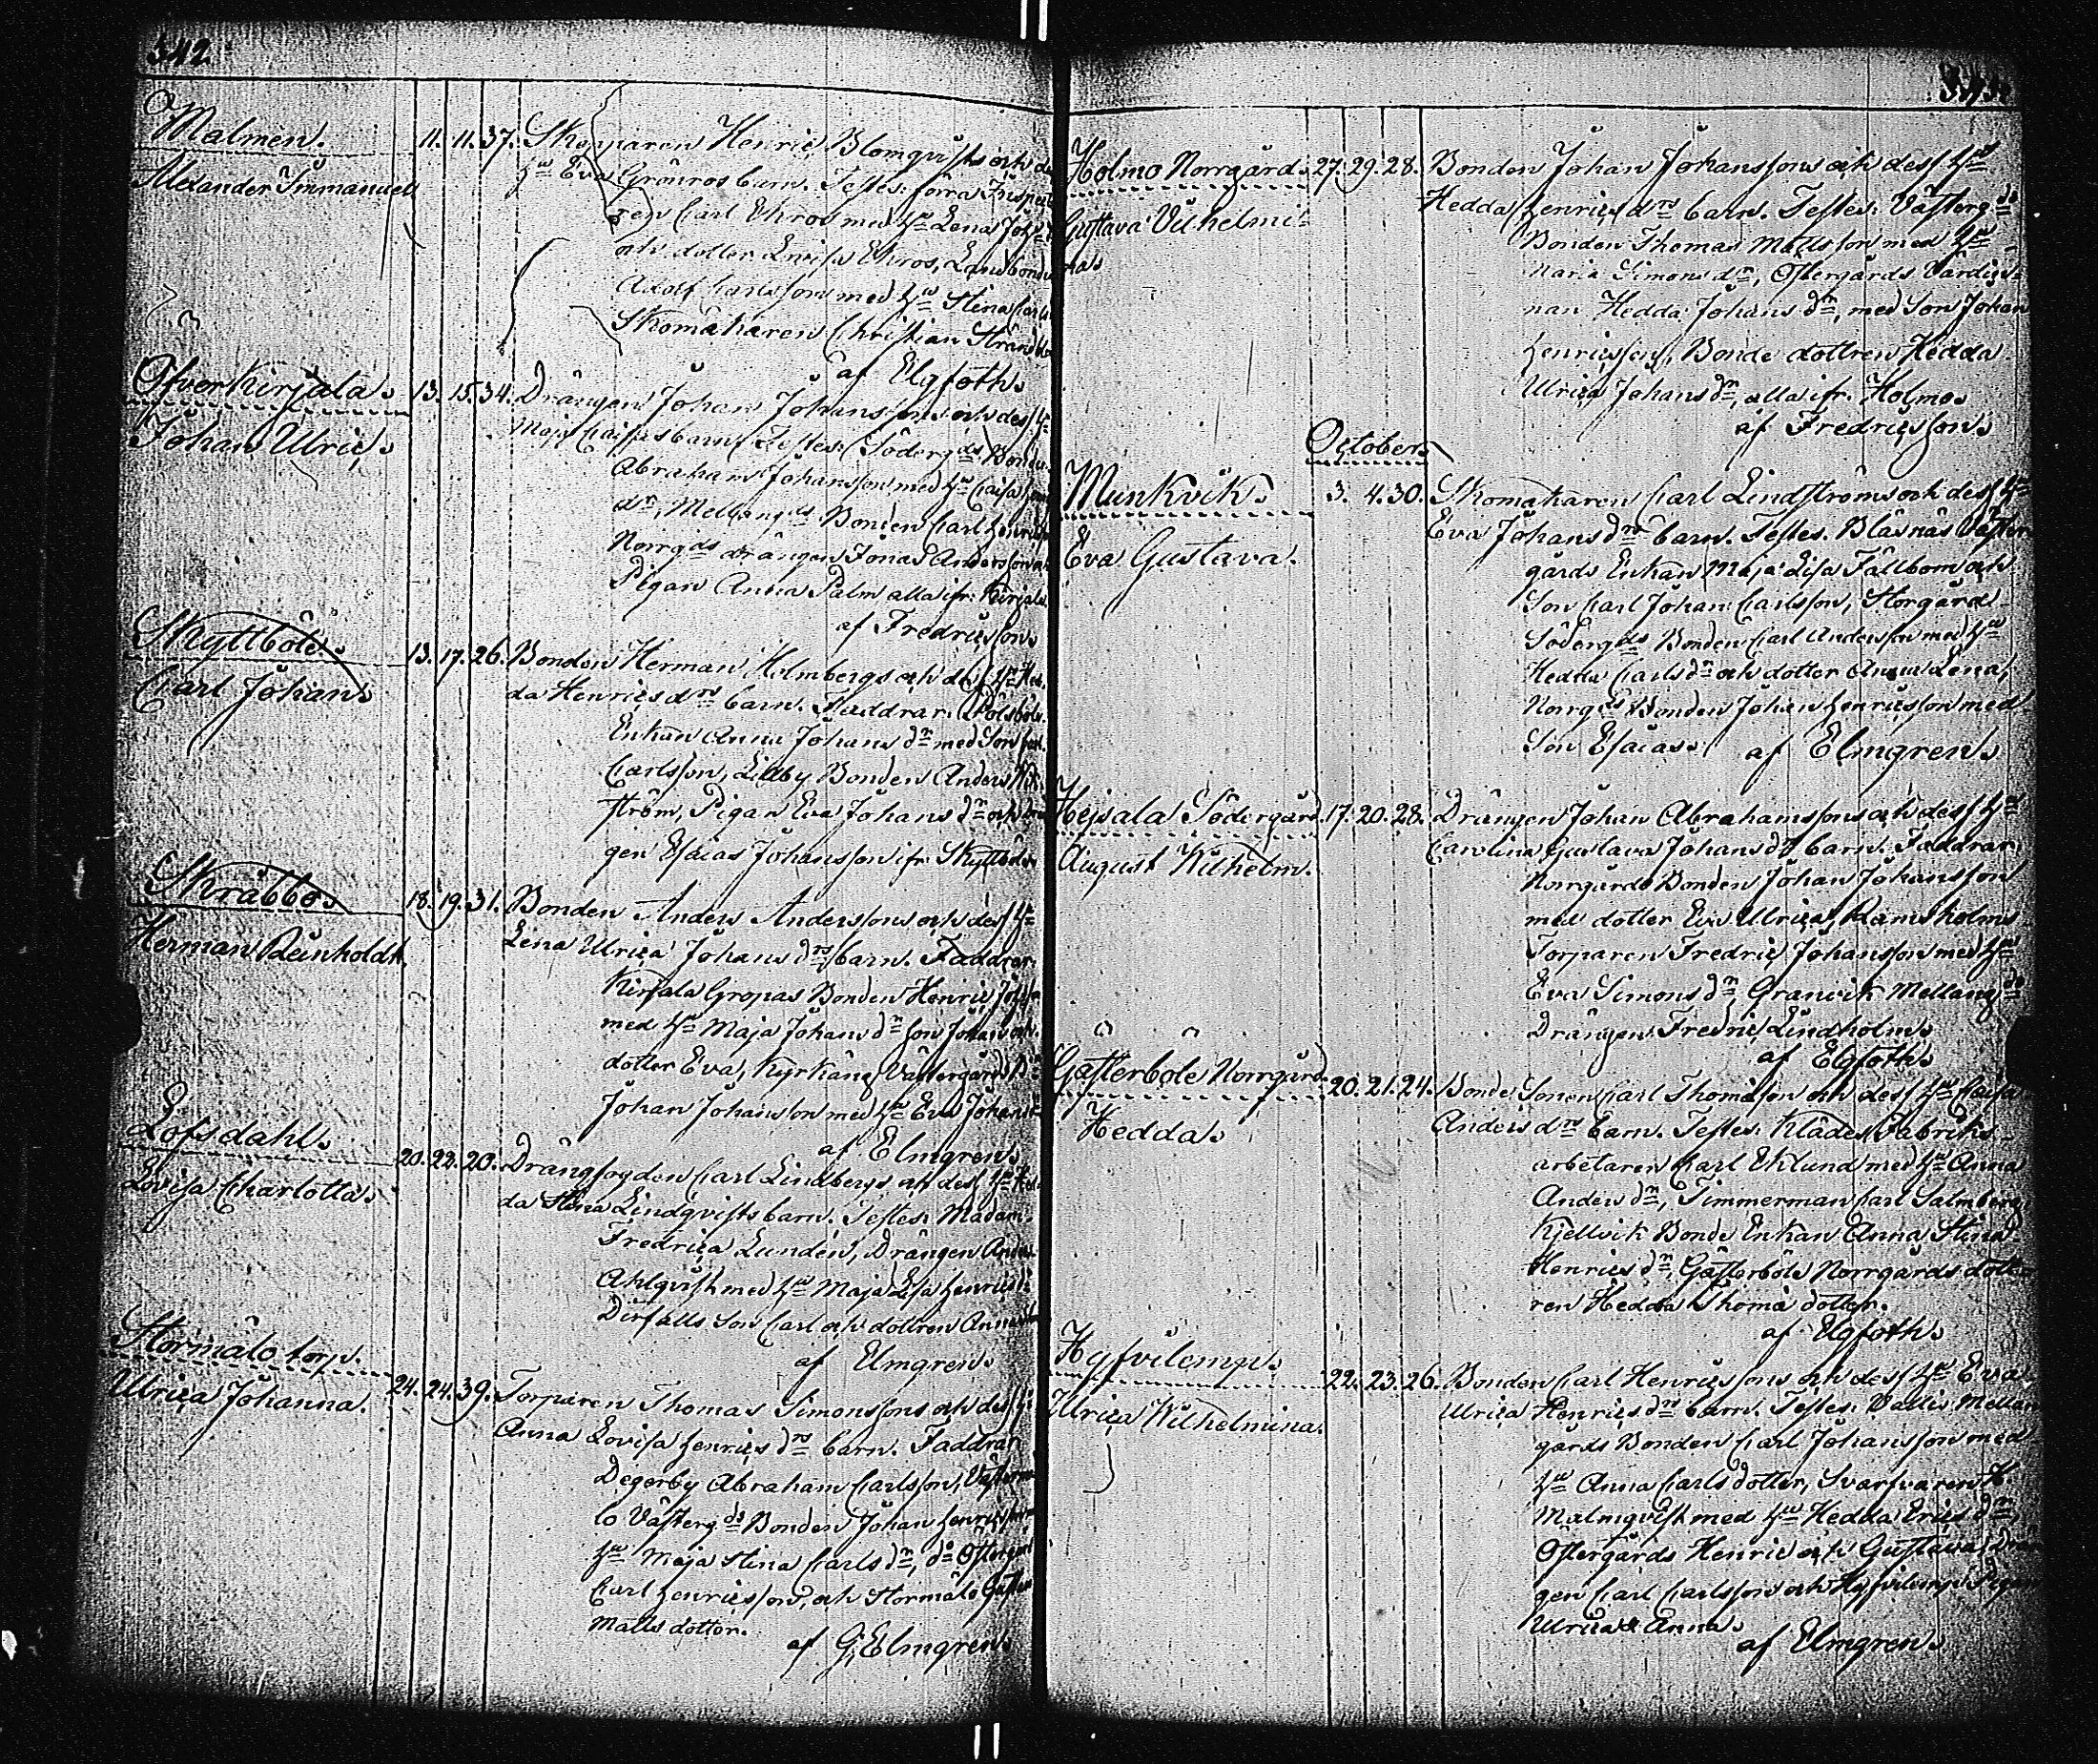 342.
Malmen.
Alexander Immanuel
11. 11. 37. Skepparen Henric Blomqvists och de
hu Eva Grönros barn. Testes: förra Inspect
ren Carl Ehros med hu Lena Joh
och dotter Lovisa Ehros, Landbonde
Adolf Carlsson med hu Stina Carls
Skomakaren Christian Strandbe
af Elgfoth.
Öfverkirjala.
Johan Ulric.
13. 15. 34. Drängen Johan Johanssons och dess h
Maja Caisas barn. Testes: Södergds Bonden
Abraham Johansson med hu Caisa
dr, Mellangds Bonden Carl Henrics
Norrgds drängen Jonas Andersson och
Pigan Anna Palm alla ifr. Kirjala
af Fredricsson.
Skyttböle.
Carl Johan.
13. 17. 26. Bonden Herman Holmbergs och dess hu Hed
da Henricsdrs barn. Faddrar:
Enkan Anna Johans dr med Son
Carlsson, Lillby Bonden Anders Wik
ström, Pigan Eva Johans dr och drän
gen Esaias Johansson ifr. Skyttböle.
Skräbbo.
Herman Reinholdt.
18. 19. 31. Bonden Anders Anderssons och dess hu
Lena Ulrica Johans drs barn. Faddrar:
Kirjala Gropas Bonden Henric Johs
med hu Maja Johans dr Son Johan och
dotter Eva, Kyrkäng Västergårds
Johan Johansson med hu Eva Johans
af Elmgren.
Lofsdahl.
Lovisa Charlotta.
20. 22. 20. Drängfogden Carl Lindbergs och dess hu Hed
da Stina Lindqvists barn. Testes: Madam
Fredrica Lunden, Drängen Anders
Ahlqvist med hu Maja Lisa Henrics
Son Carl och dottren Anna
af Elmgren.
Stormälö torp.
Ulrica Johanna.
24. 24. 39. Torparen Thomas Simonssons och dess h
Anna Lovisa Henrics drs barn. Faddrar
Degerby Abraham Carlsson,
lö Västergds Bonden Johan Henricsson
hu Maja Stina Carls dr, do Östergårds
Carl Henricsson, och Stormälö
Matts dotter.
af G. Elmgren.
343.
Holmo Norrgård.
Gustava Vilhelmi-
na.
27. 29. 28. Bonden Johan Johanssons och dess hu
Hedda Henrics drs barn. Testes: Västergds
Bonden Thomas Mattsson med hu
Maria Simons dr, Östergårds Värdin-
nan Hedda Johans dr, med Son Johan
Henricsson, Bonde dottren Hedda
Ulrica Johans dr, alla ifr. Holmo.
af Fredricsson.
October.
Munkvik.
Eva Gustava.
3. 4. 30. Skomakaren Carl Lindströms och dess hu
Eva Johans drs barn. Testes. Bläsnäs Väster-
gårds Enkan Maja Lisa Fällbom och
Son Carl Johan Carlsson, Storgård
Södergds Bonden Carl Andersson med hu
Hedda Carls dr och dotter Anna Lena,
Norrgds Bonden Johan Henricsson med
Son Esaias. af Elmgren.
Heisala Södergård
August Wilhelm.
17. 20. 28. Drängen Johan Abrahamssons och dess hu
Carolina Gustava Johans drs barn. Faddrar:
Norrgårds Bonden Johan Johansson
med dotter Eva Ulrica, Ramsholms
Torparen Fredric Johansson med hu
Eva Simons dr Granvik Mellangds
Drängen Fredric Lindholm.
af Elgfoth.
Gästerböle Norrgård.
Hedda.
20. 21. 24. Bonde Sonen Carl Thomasson och dess hu Caisa
Anders drs barn. Testes: Klädes Fabriks-
arbetaren Carl Eklund med hu Anna
Anders dr, Timmerman Carl Salmberg
Kjellvik Bonde Enkan Anna Stina
Henrics dr, Gästerböle Norrgårds dott-
ren Hedda Thomæ dotter.
af Elgfoth.
Hyfvilemp.
Ulrica Wilhelmina.
22. 23. 26. Bonden Carl Henricssons och dess hu Eva
Ulrica Henrics drs barn. Testes: Mellan
gårds Bonden Carl Johansson med
hu Anna Carls dotter, Svarfvaren
Malmqvist med hu Hedda Erics dr,
Östergårds Henric och Gustava, Drän
gen Carl Carlsson och Hyfvilemp Pigan
Ulrica Anna.
af Elmgren.